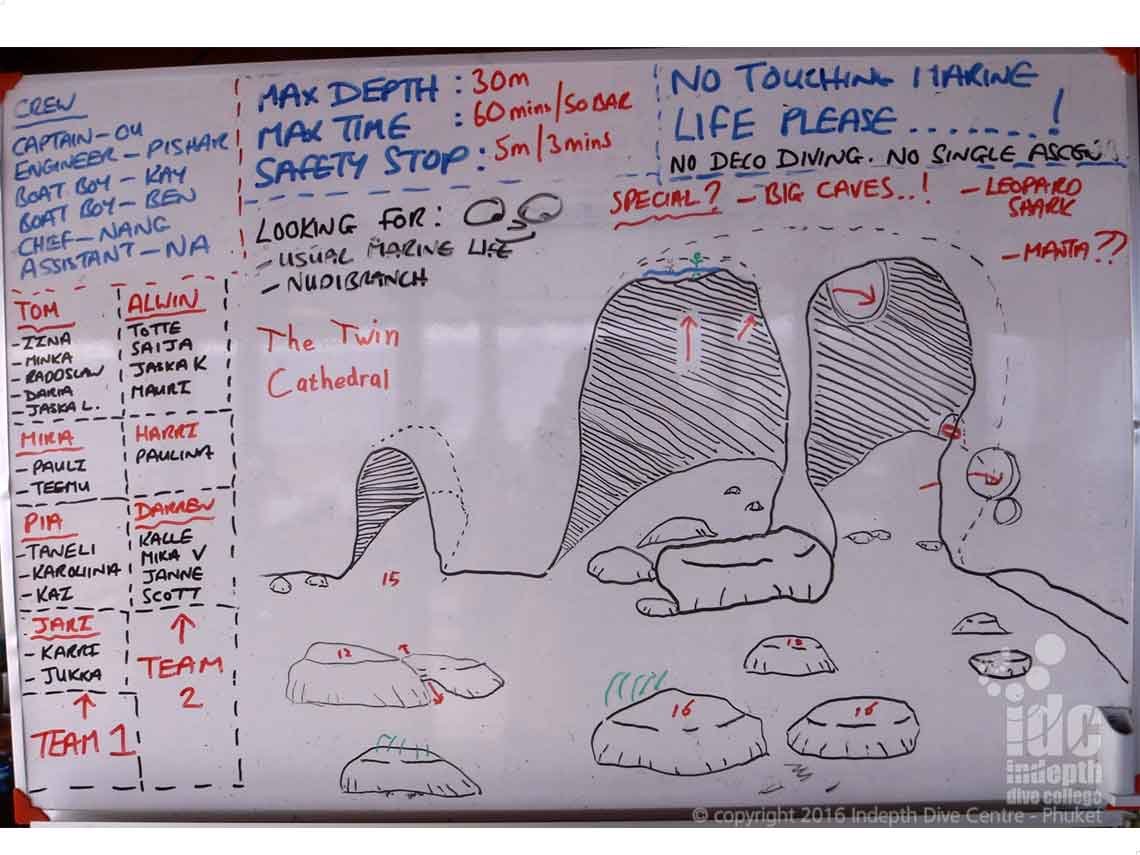 CREW
CAPTAIN-OU
ENGINEER - PISHAK
BOAT BOY - KAY
BOAT BOY - BEN
CHEF-NANG
ASSISTANT-NA
MAX DEPTH : 30m
MAX TIME : 60mins/50BAR
SAFETY STOP : 5m/3mins
NO TOUCHING MARINE
LIFE PLEASE ........!
NO DECO DIVING. NO SINGLE ASCEN
LOOKING FOR:
- USUAL MARINE LIFE
- NUDIBRANCH
SPECIAL? - BIG CAVES..! - LEOPARD
SHARK
- MANTA??
The Twin
Cathedral
TOM
- IINA
- MINKA
- RADOSLAW
- DARIA
- JASKA L.
ALWIN
TOTTE
SAIJA
JASKA K
MAURI
MIRA
- PAULI
- TEEMU
HARRI
PAULINA
PIA
- TANELI
- KAROLIINA
- KAI
DARREN
KALLE
MIKA V
JANNE
SCOTT
JARI
- KARRI
- JUKKA
TEAM 1
TEAM
2
15
12
16
idc
indepth
dive college
© copyright 2016 Indepth Dive Centre - Phuket